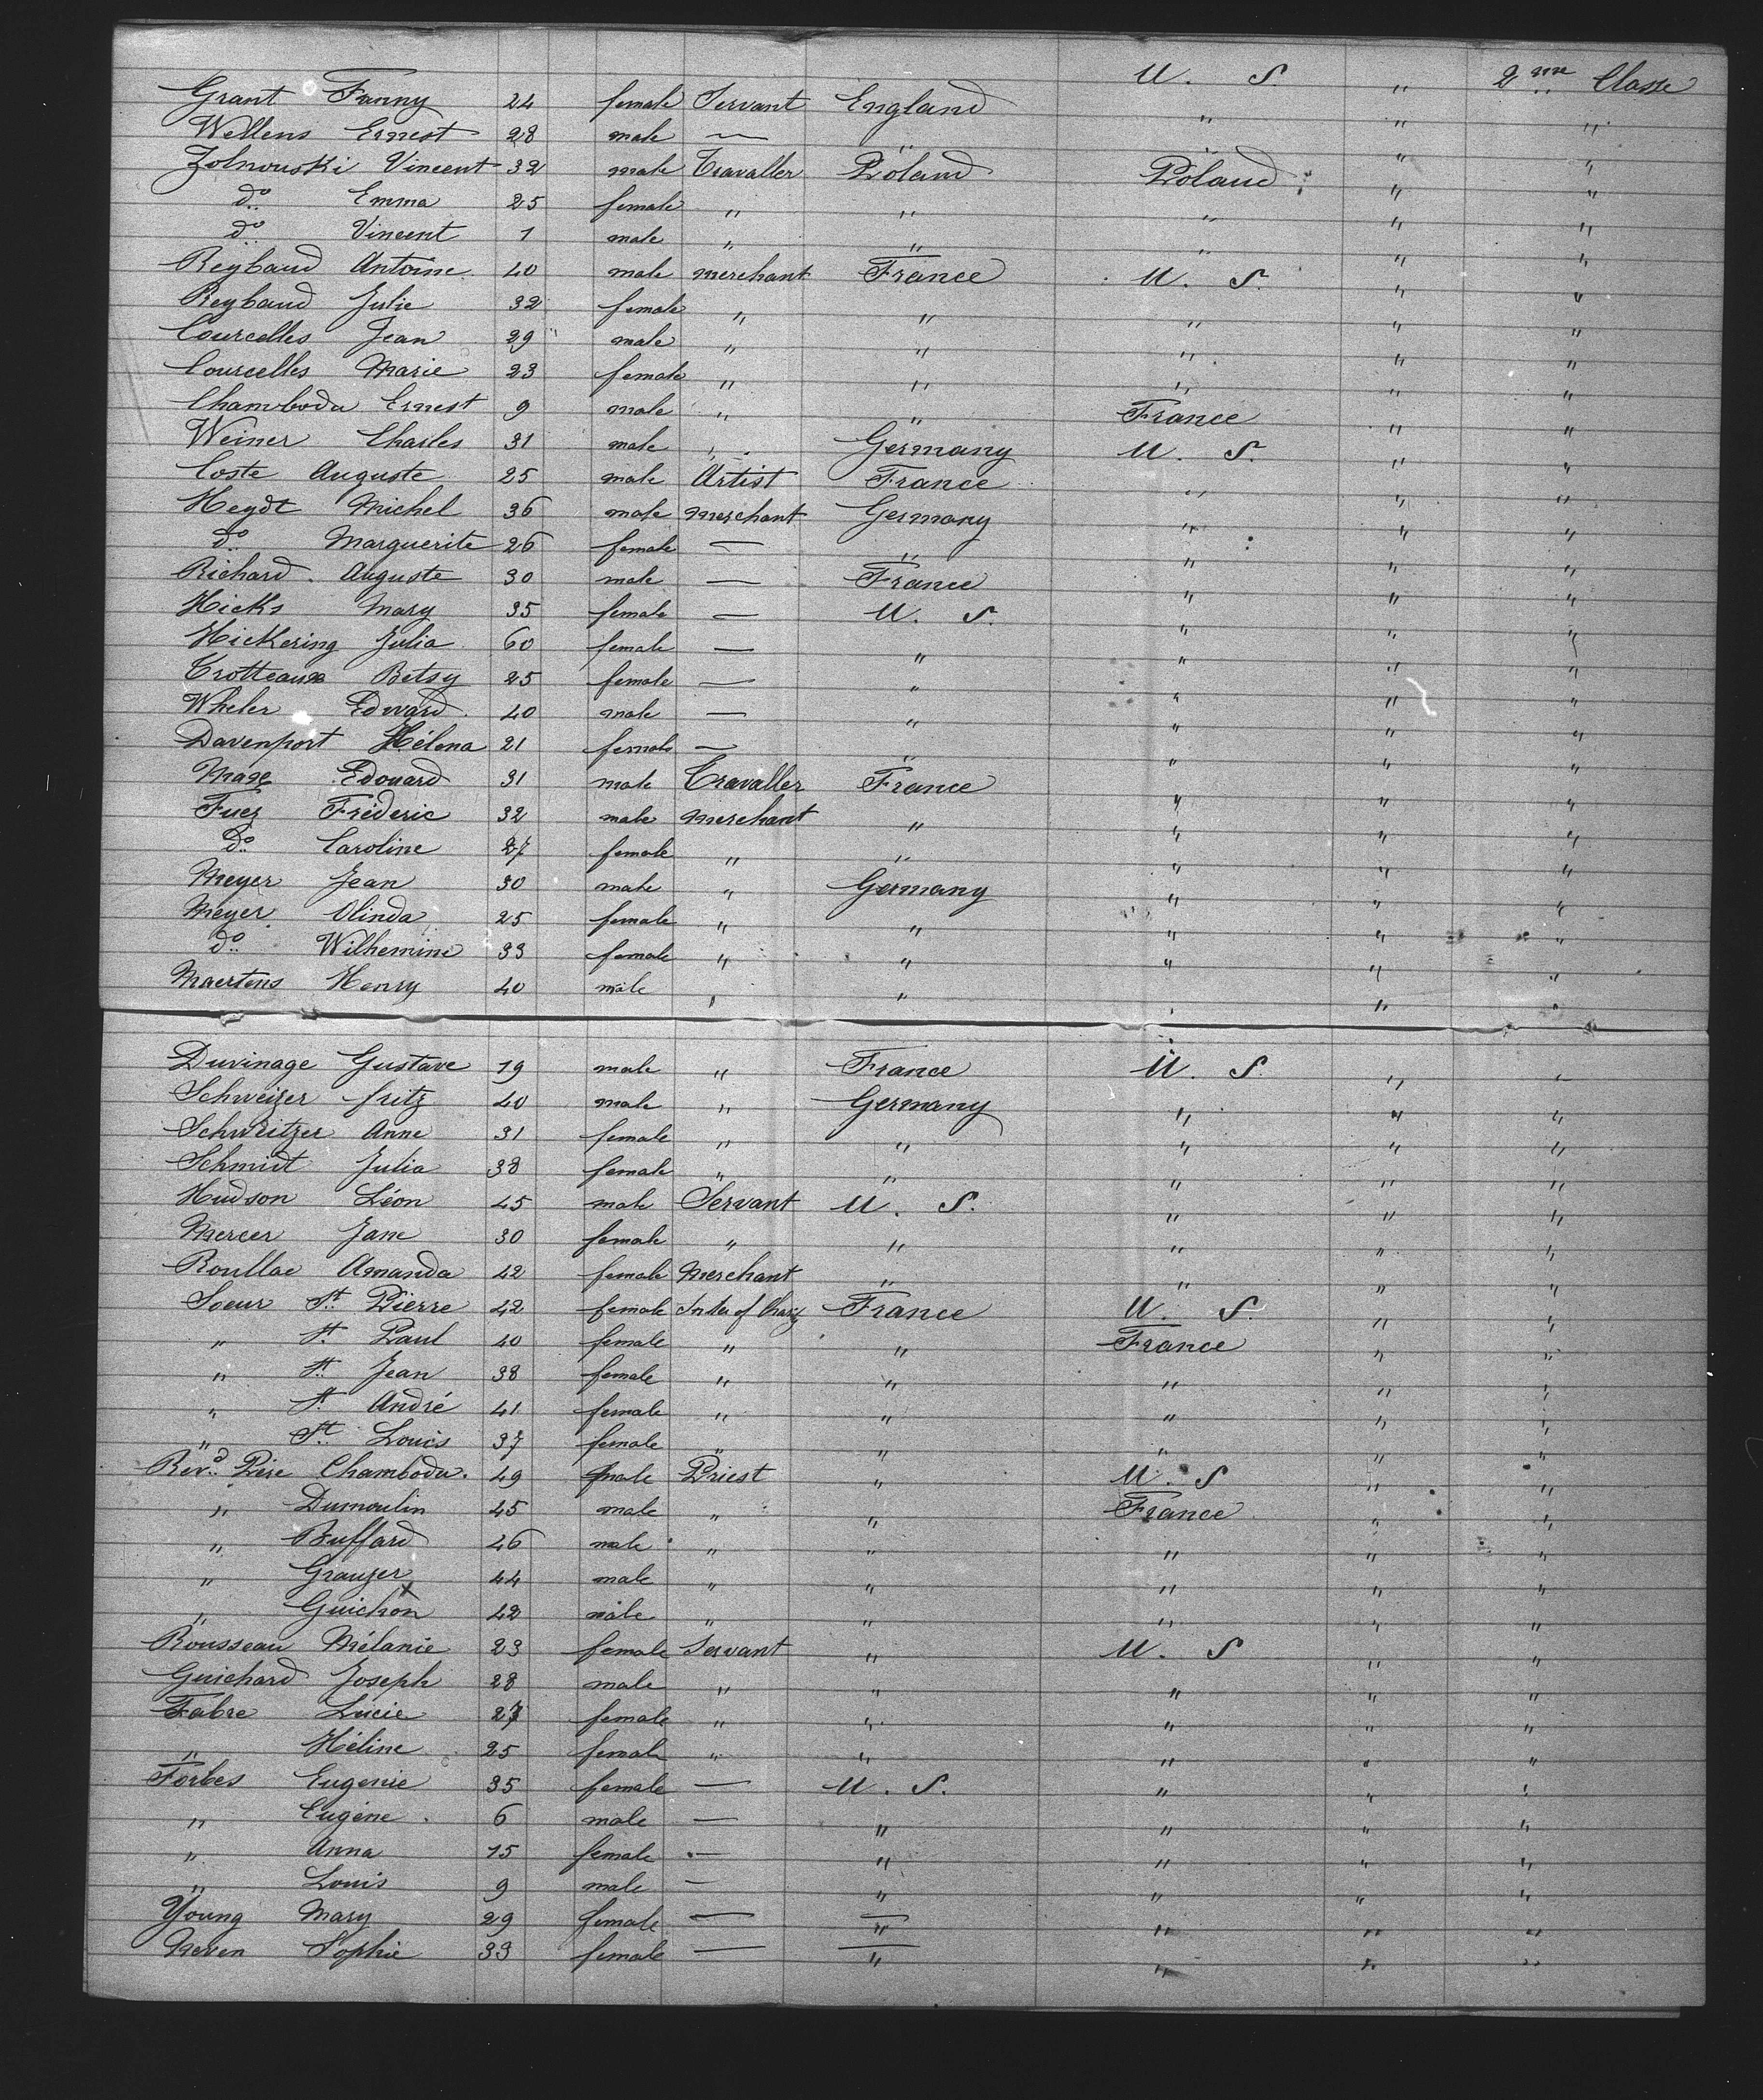 Grant Fanny 24 female Servant England U. S. " 2me Classe
Wellens Ernest 28 male — " " " "
Zolnouski Vincent 32 male Travaller Poland Poland " "
do Emma 25 female " " " " "
do Vincent 1 male " " " " "
Reybaud Antoine 40 male merchant France U. S. " "
Reybaud Julie 32 female " " " " "
Courcelles Jean 29 male " " " " "
Courcelles Marie 23 female " " " " "
Chambodu Ernest 9 male " " France " "
Weiner Charles 31 male " Germany U. S. " "
Coste Auguste 25 male Artist France " " "
Heydt Michel 36 male merchant Germany " " "
do Marguerite 26 female — " " " "
Richard Auguste 30 male — France " " "
Hicks Mary 35 female — U. S. " " "
Hickering Julia 60 female — " " " "
Trotteaux Betsy 25 female — " " " "
Wheler Edward 40 male — " " " "
Davenport Hélena 21 female — " " " "
Mage Edouard 31 male Travaller France " " "
Fuez Fréderic 32 male merchant " " " "
Do Caroline 27 female " " " " "
Meyer Jean 30 male " Germany " " "
Meyer Olinda 25 female " " " " "
do Wilhemine 33 female " " " " "
Maertens Henry 40 male " " " " "
Duvinage Gustave 19 male " France U. S. " "
Schweizer fritz 40 male " Germany " " "
Schweitzer Anne 31 female " " " " "
Schmidt Julia 38 female " " " " "
Hudson Léon 45 male Servant U. S. " " "
Mercer Jane 30 female " " " " "
Roullac Amanda 42 female Merchant " " " "
Soeur St. Pierre 42 female of France U. S. " "
" St. Paul 40 female " " France " "
" St. Jean 38 female " " " " "
" St. André 41 female " " " " "
" St. Louis 37 female " " " " "
Revd. Père Chambodu. 49 male Priest " U. S " "
" Dumoulin 45 male " " France " "
" Buffard 46 male " " " " "
" Granger 44 male " " " " "
" Guichon 42 male " " " " "
Rousseau Mélanie 23 female Servant " U. S " "
Guichard Joseph 28 male " " " " "
Fabre Lucie 27 female " " " " "
" Héline 25 female " " " " "
Forbes Eugenie 35 female — U. S. " " "
" Eugéne 6 male — " " " "
" Anna 15 female — " " " "
" Louis 9 male — " " " "
Young Mary 29 female — " " " "
Sophie 33 female — " " " "